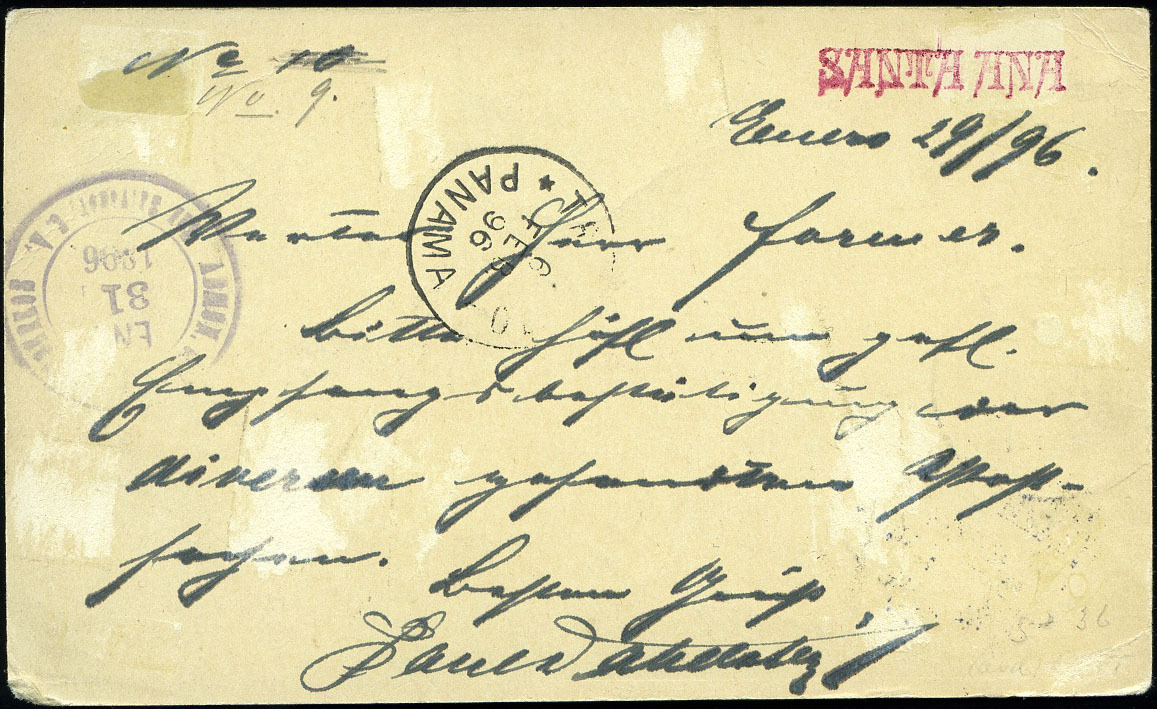 No 10
No. 9.
SANTA ANA
Enero 29/96.
PANAMA
FEB
6
96
EN
31
1896
Werter Herr Farmer.
bitte höfl um gefl.
Empfangsbestätigung der
diversen gesandten Post-
sachen.
Besten Gruß
Paul